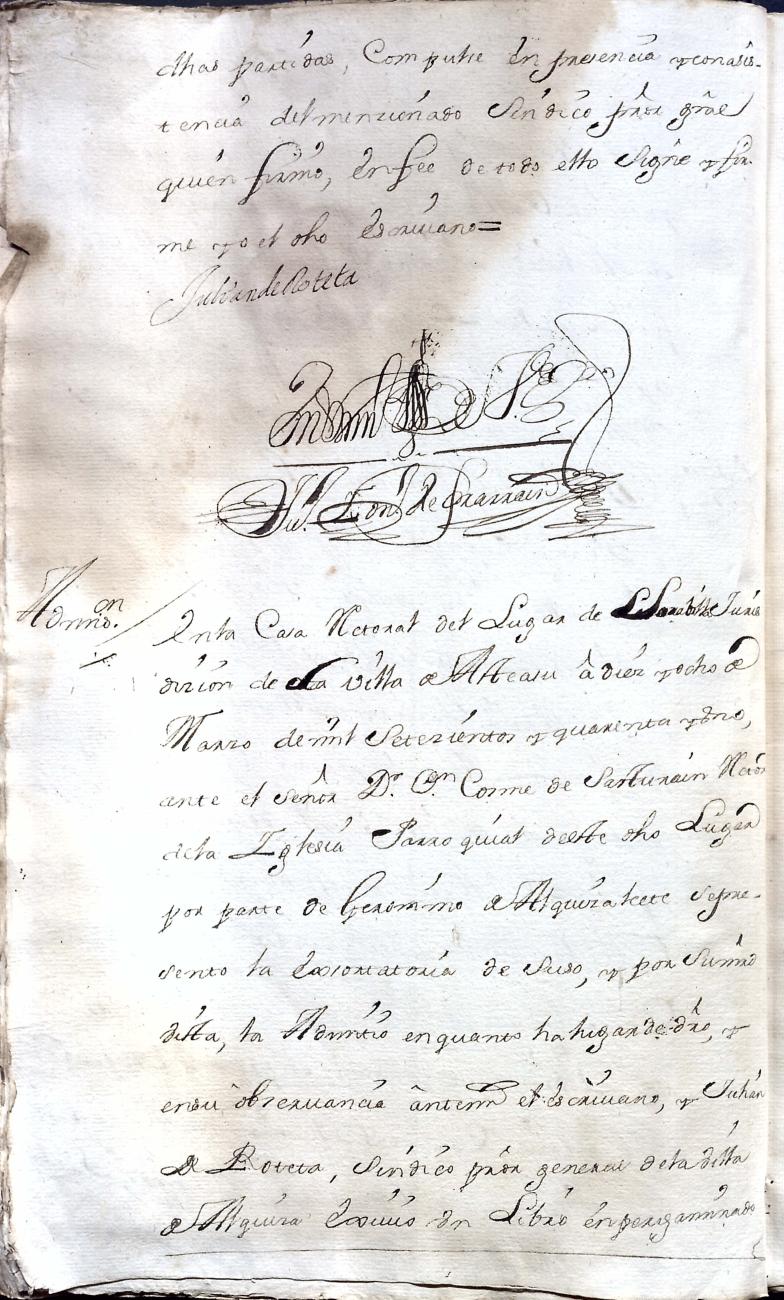 dhas partidas, Compulse en presencia y conasis-
tencia del menzionado Sindico pror gral
quien firmó, en fee de todo ello Signe y fir-
me yo el dho escriuano =
Julian de Roteta
En testimo de Verd
Ju. de Larrarain
Admison.
En la Casa Rectoral del Lugar de Juris
dizion de esta villa de Asteasu â diez y ocho de
Marzo de mil Setezientos y quarenta y uno,
ante el señor Dr. Dn Cosme de Sarturain Rector
dela Iglesia Parroquial deste dho Lugar
por parte de Geronimo de Alquizalete se pre-
sento la exortatoria de Suso, y por Su mrd
vista, la Admitio en quanto ha lugar de dro, y
en su obseruancia ante mi el escriuano, y Julian
de Roteta, Sindico pror general dela villa
de Alquiza exiuio un Libro en pergaminado